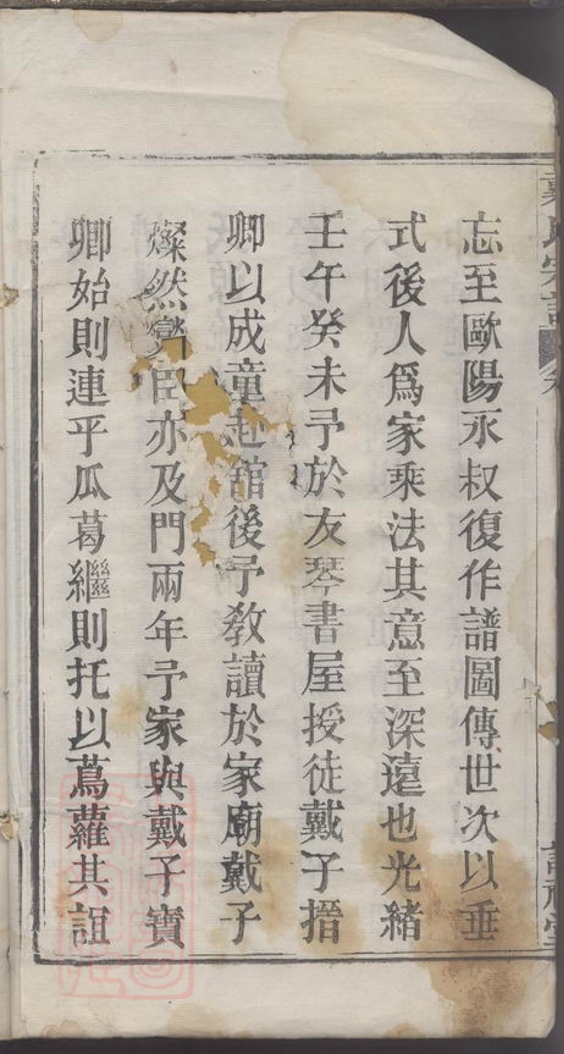 忘至歐陽永叔復作譜圖傳世次以垂
式後人爲家乘法其意至深遠也光緒
壬午癸未予於友琴書屋授徒戴子搢
卿以成童赴舘後予教讀於家廟戴子
燦然臣亦及門兩年予家與戴子寶
卿始則連乎瓜葛繼則托以蔦蘿其誼